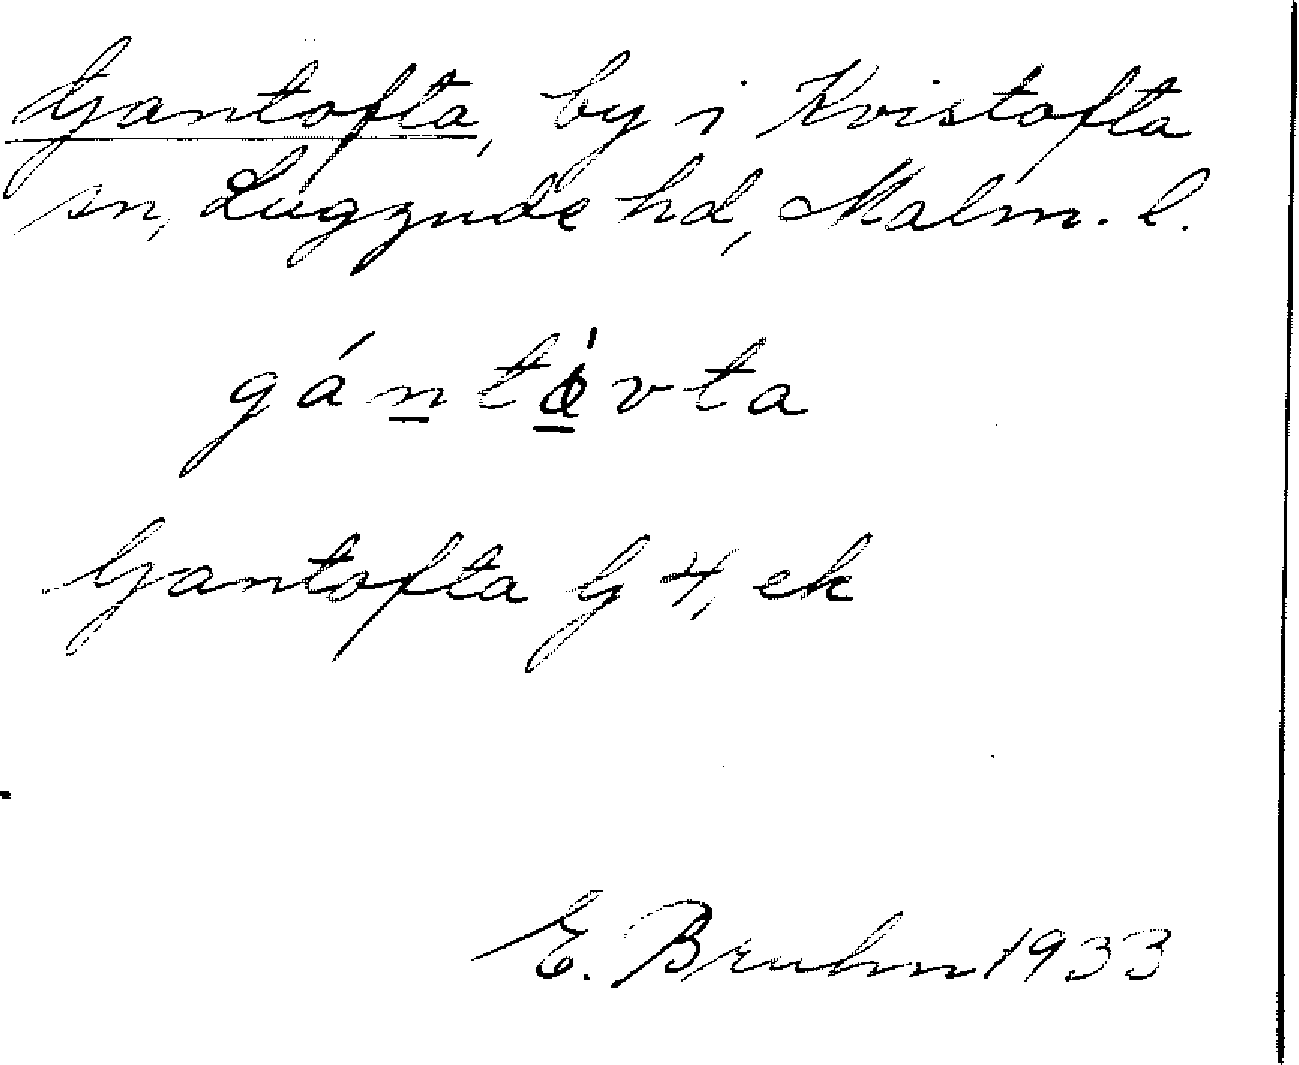 Gantofta, by i Kvistofta
sn, Luggude hd, Malm. l.
gántǫ̀vta
Gantofta G 4, ek
E. Bruhn 1933